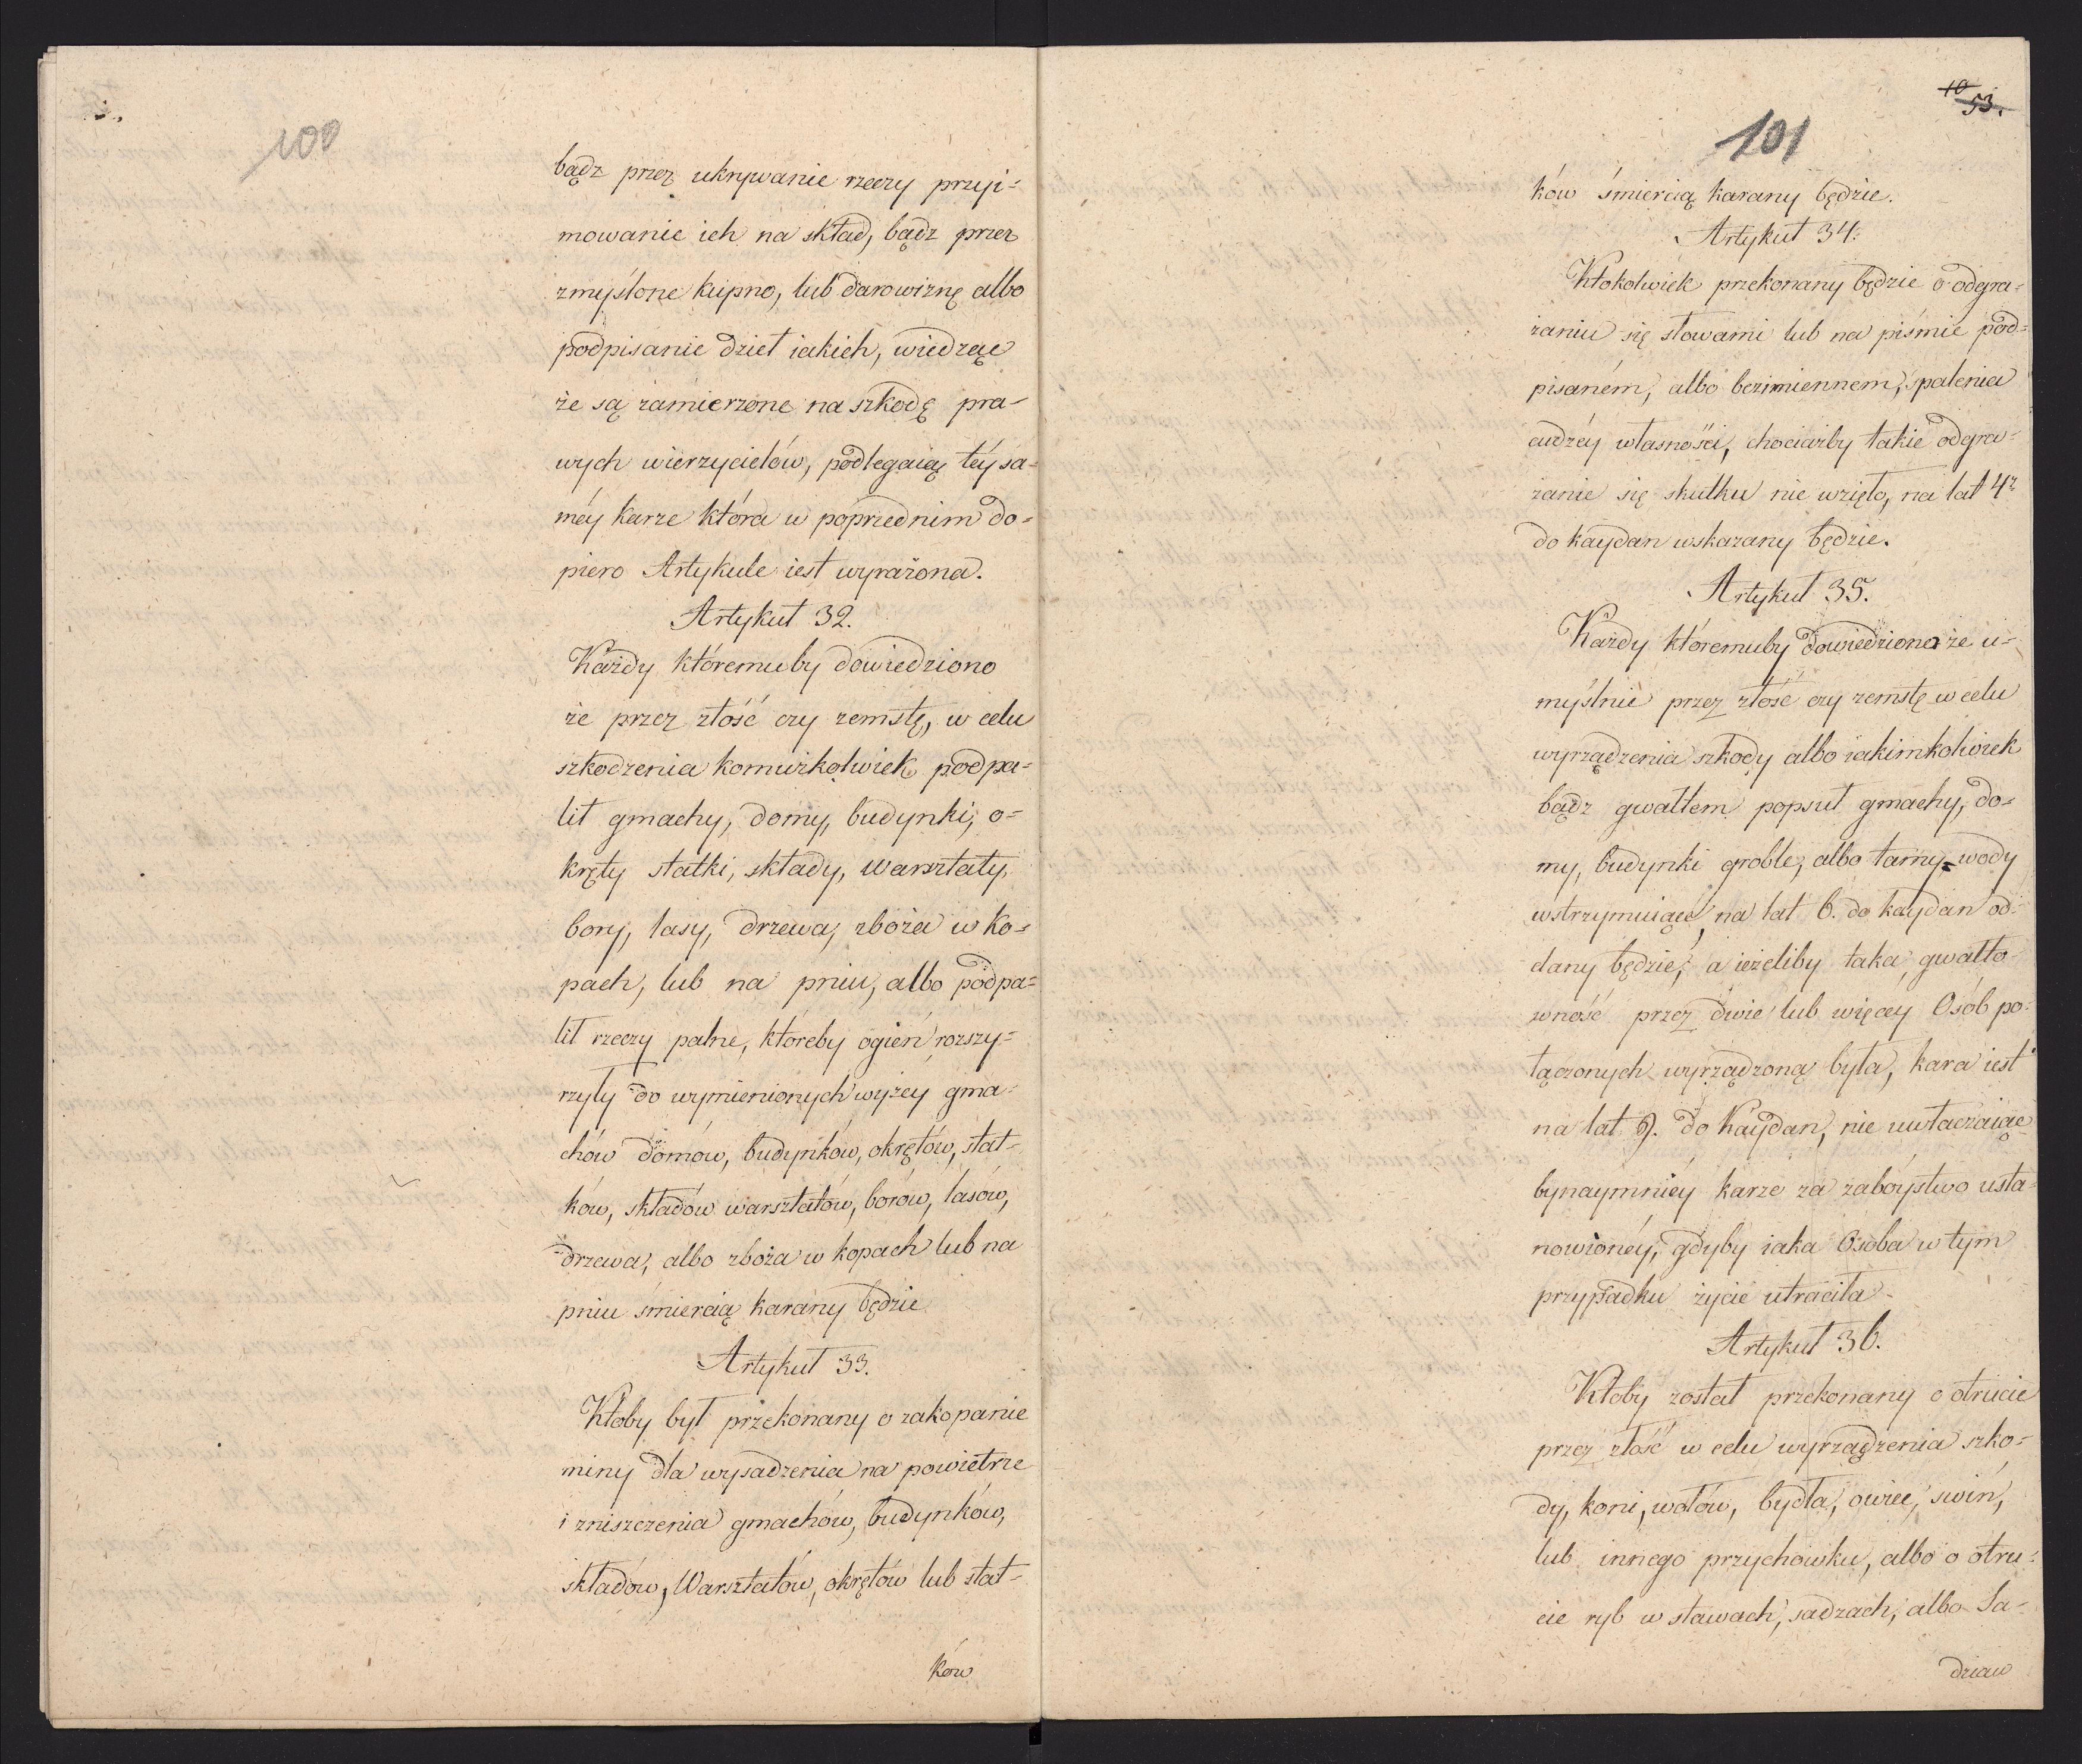 100
bądz przez ukrywanie rzeczy przyi=
mowanie ich na skład, bądz przez
zmyślone kupno, lub darowiznę albo
podpisanie dzieł iakich, wiedząc
że są zamierzone na szkodę pra-
wych wierzycielów, podlegaią téy sa-
méy karze która w poprzednim do=
piero Artykule iest wyrażona.
Artykuł 32.
Każdy któremuby dowiedziono
że przez złość czy zemstę, w celu
szkodzenia komużkolwiek podpa=
lił gmachy, domy, budynki, o=
kręty statki, składy, Warsztaty,
bory, lasy, drzewa, zboża w ko=
pach, lub na pniu, albo podpa=
lił rzeczy palne, któreby ogień rozszy=
rzyły do wymienionych wyżey gma-
chów domów, budynków, okrętów, stat-
ków, składów warsztatów, borów, lasów,
drzewa, albo zboża w kopach lub na
pniu śmiercią karany będzie
Artykuł 33.
Ktoby był przekonany o zakopanie
miny dla wysadzenia na powietrze
i zniszczenia gmachów, budynków,
składów, Warsztatów, okrętów lub stat-
ków
10
53.
101
ków śmiercią karany będzie.
Artykuł 34.
Ktokolwiek przekonany będzie o odgra=
żaniu się słowami lub na piśmie pod=
pisaném, albo bezimiennem, spalenia
cudzéy własności, chociażby takie odgra=
żanie się skutku nie wzięło, na lat 4.
do kaydan wskazany będzie.
Artykuł 35.
Każdy któremuby dowiedziono że u=
myślnie przez złość czy zemstę w celu
wyrządzenia szkody albo iakimkolwiek
bądz gwałtem popsuł gmachy, do=
my, budynki groble, albo tamy wody
wstrzymuiące, na lat 6. do kaydan od=
dany będzie, a ieżeliby taka gwałto-
wność przez dwie lub więcéy Osób po=
łączonych wyrządzoną była, kara iest
na lat 9. do Kaydan, nie uwłaczaiąc
bynaymniéy karze za zabóystwo usta=
nowionéy, gdyby iaka Osoba w tym
przypadku życie utraciła.
Artykuł 36.
Ktoby został przekonany o otrucie
przez złość w celu wyrządzenia szko=
dy, koni, wołów, bydła, owiec, swiń,
lub innego przychowku, albo o otru=
cie ryb w stawach, sadzach, albo Sa-
dzaw